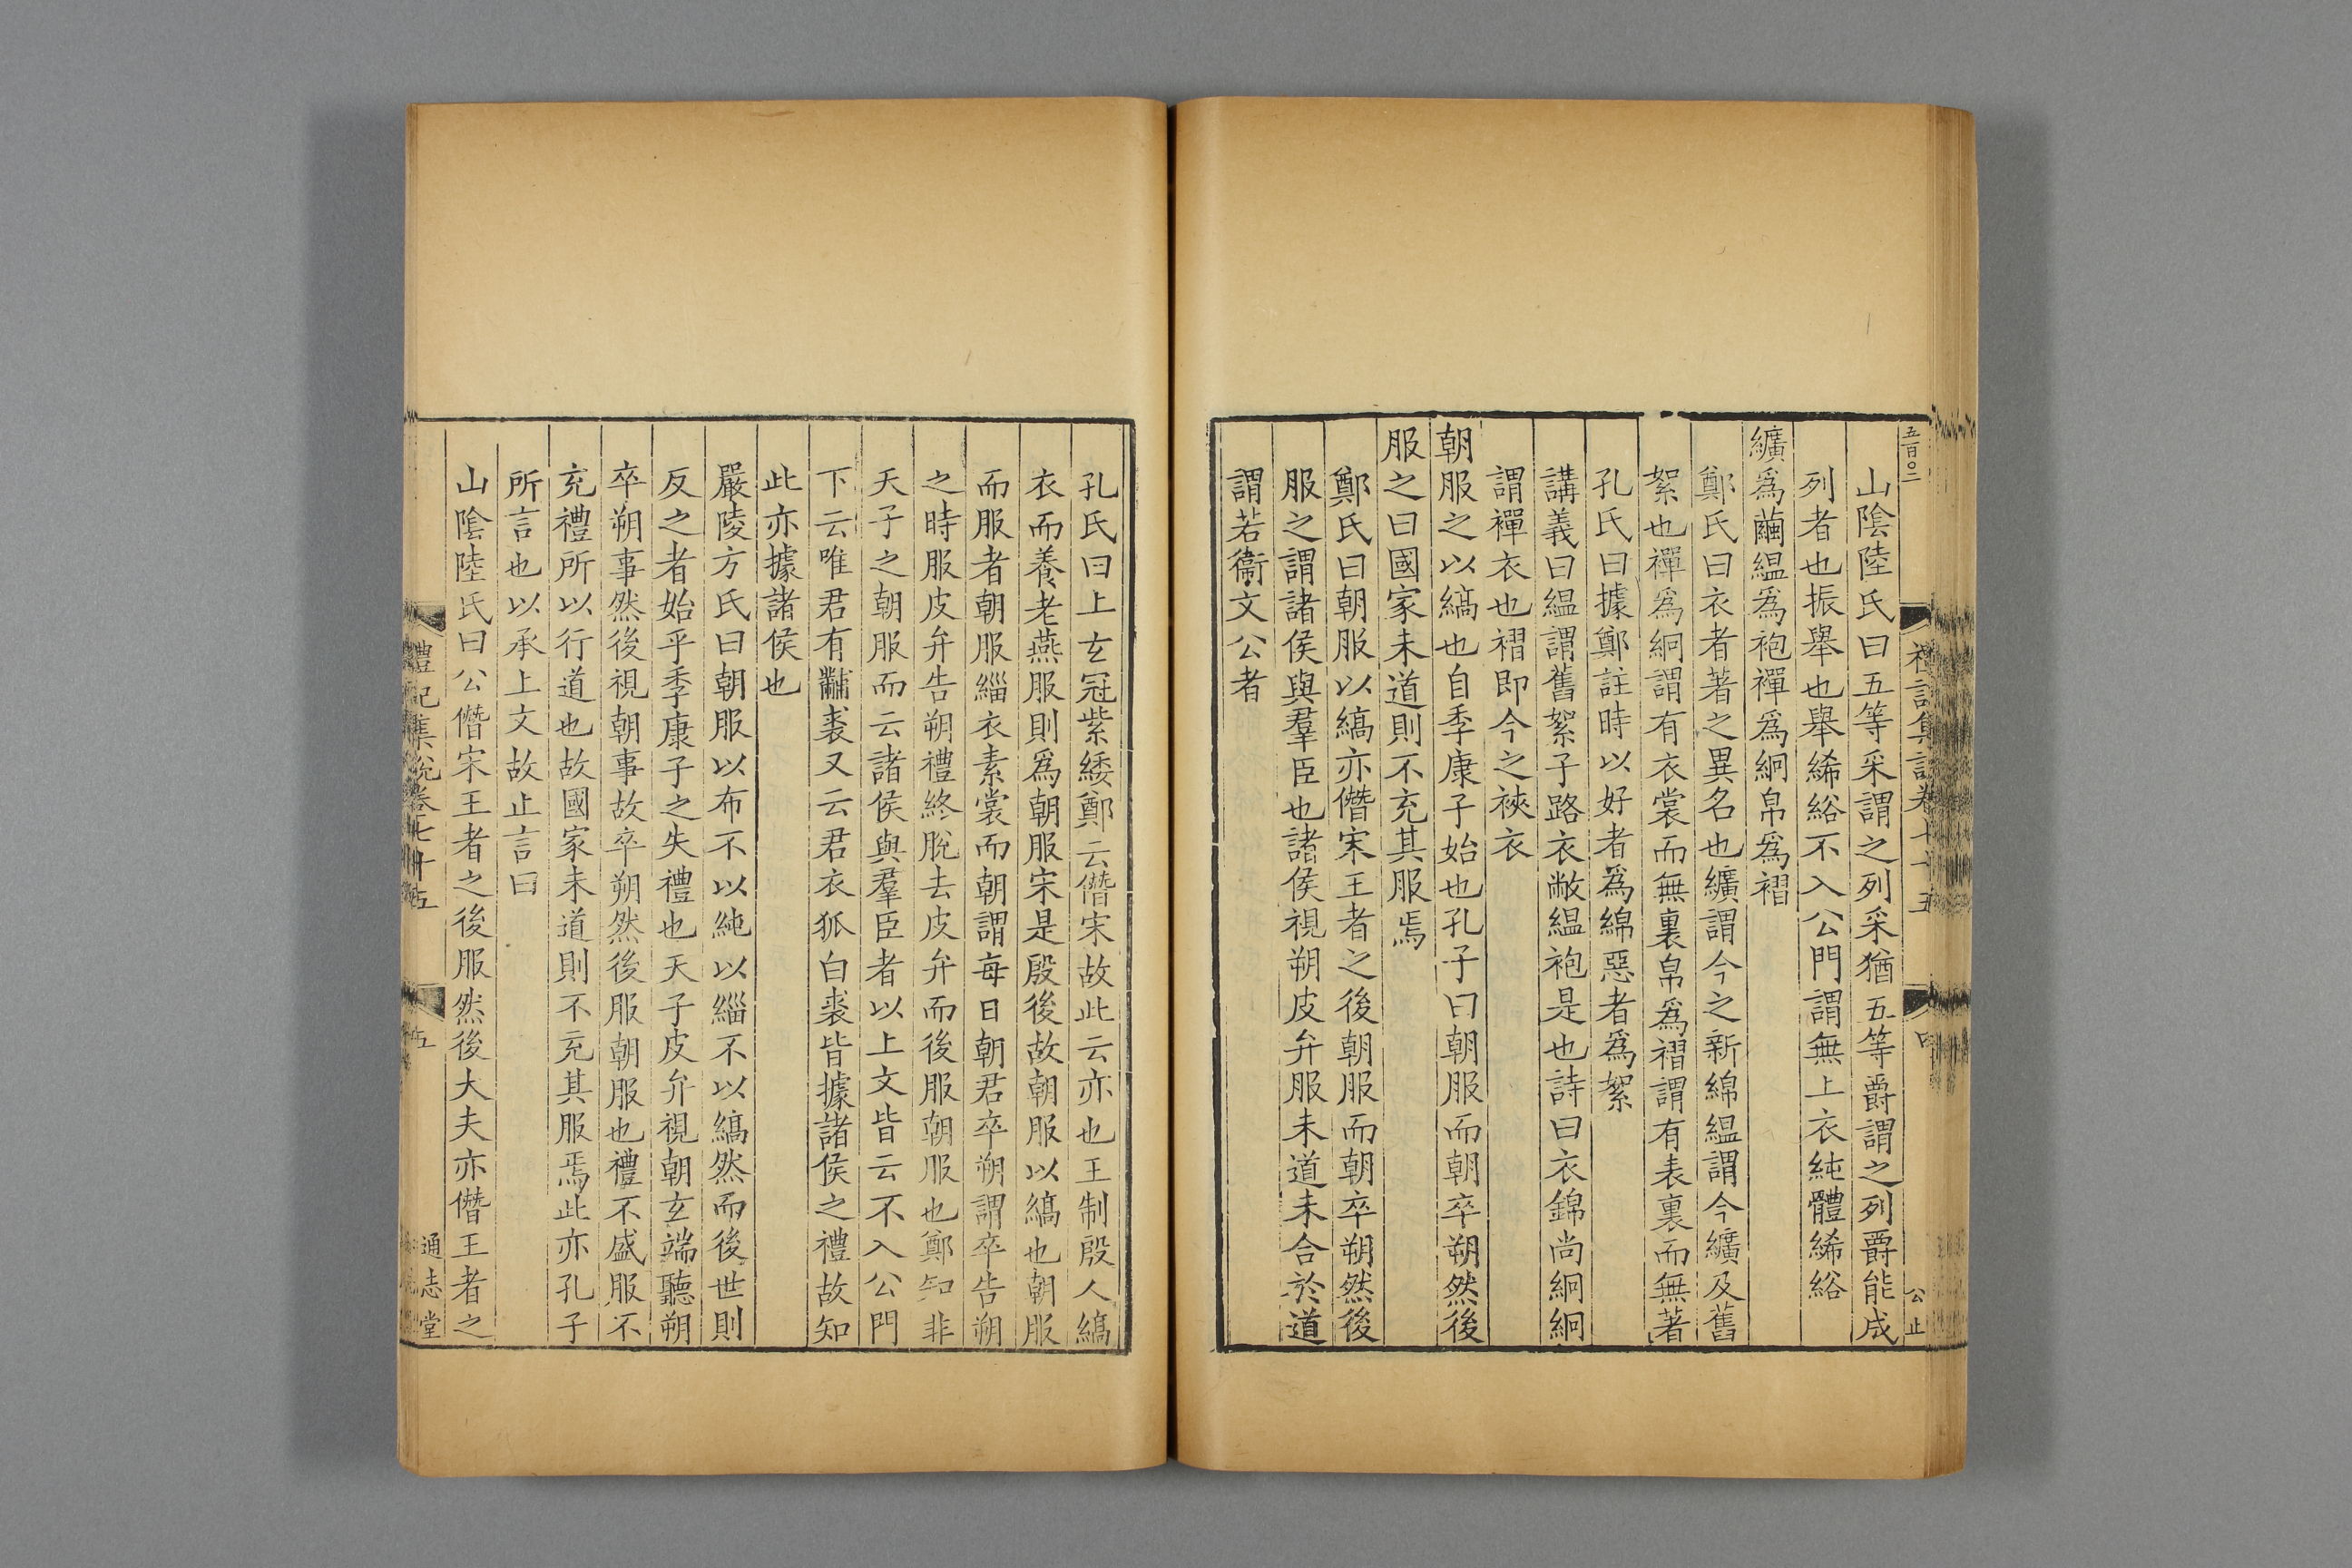 五百〇二
禮記集說卷七十五
四
公止
山陰陸氏曰五等采謂之列采猶五等爵謂之列爵能成
列者也振舉也舉絺綌不入公門謂無上衣純體絺綌
纊爲繭縕爲袍襌爲絅帛爲褶
鄭氏曰衣者著之異名也纊謂今之新綿縕謂今纊及舊
絮也襌爲絅謂有衣裳而無裏帛爲褶謂有表裏而無著
孔氏曰據鄭註時以好者爲綿惡者爲絮
講義曰縕謂舊絮子路衣敝縕袍是也詩曰衣錦尚絅絅
謂襌衣也褶即今之裌衣
朝服之以縞也自季康子始也孔子曰朝服而朝卒朔然後
服之曰國家未道則不充其服焉
鄭氏曰朝服以縞亦僭宋王者之後朝服而朝卒朔然後
服之謂諸侯與羣臣也諸侯視朔皮弁服未道未合於道
謂若衞文公者
孔氏曰上玄冠紫緌鄭云僭宋故此云亦也王制殷人縞
衣而養老燕服則爲朝服宋是殷後故朝服以縞也朝服
而服者朝服緇衣素裳而朝謂每日朝君卒朔謂卒告朔
之時服皮弁告朔禮終脫去皮弁而後服朝服也鄭知非
天子之朝服而云諸侯與羣臣者以上文皆云不入公門
下云唯君有黼裘又云君衣狐白裘皆據諸侯之禮故知
此亦據諸侯也
嚴陵方氏曰朝服以布不以純以緇不以縞然而後世則
反之者始乎季康子之失禮也天子皮弁視朝玄端聽朔
卒朔事然後視朝事故卒朔然後服朝服也禮不盛服不
充禮所以行道也故國家未道則不充其服焉此亦孔子
所言也以承上文故止言曰
山陰陸氏曰公僭宋王者之後服然後大夫亦僭王者之
禮記集說卷七十五
五
通志堂